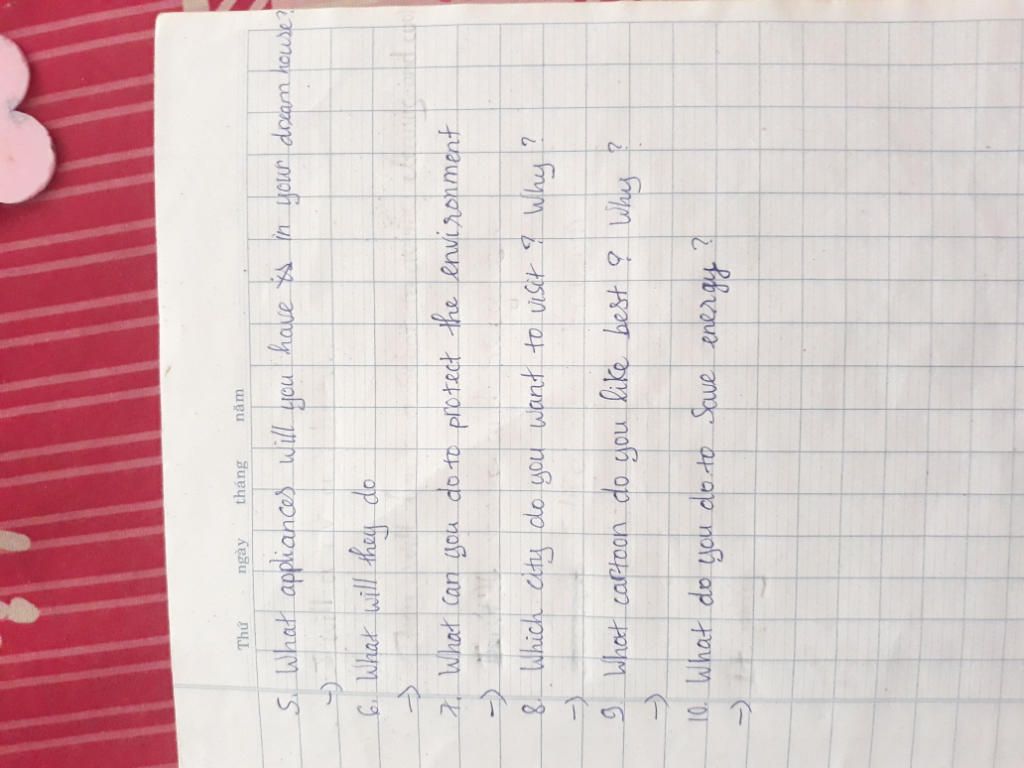 Thứ ngày tháng năm
5. What appliances will you have in your dream house?
→
6. What will they do
→
7. What can you do to protect the environment
→
8. Which city do you want to visit? Why?
→
9 What cartoon do you like best? Why?
→
10. What do you do to save energy?
→